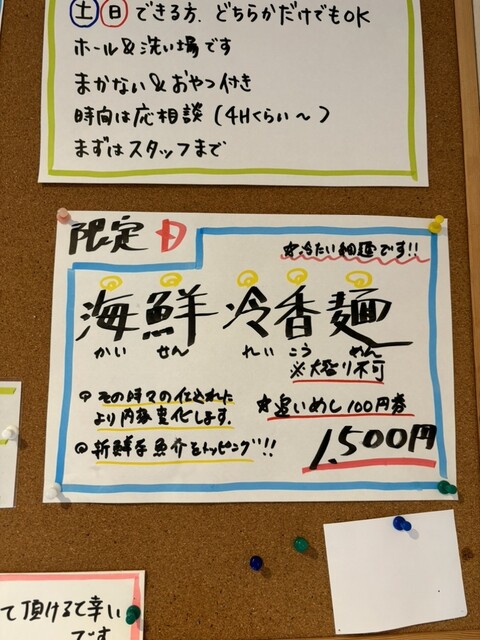 土 日 できる方、どちらかだけでもOK
ホール&洗い場です
まかない&おやつ付き
時間は応相談(4Hくらい〜)
まずはスタッフまで
限定
☆冷たい細麺です!!
海鮮冷香麺
かい せん れい こう めん
※大盛り不可
その時々の仕込みに
より内容変化します。
☆追いめし100円券
新鮮な魚介をトッピング!!
1,500円
て頂けると幸い
です